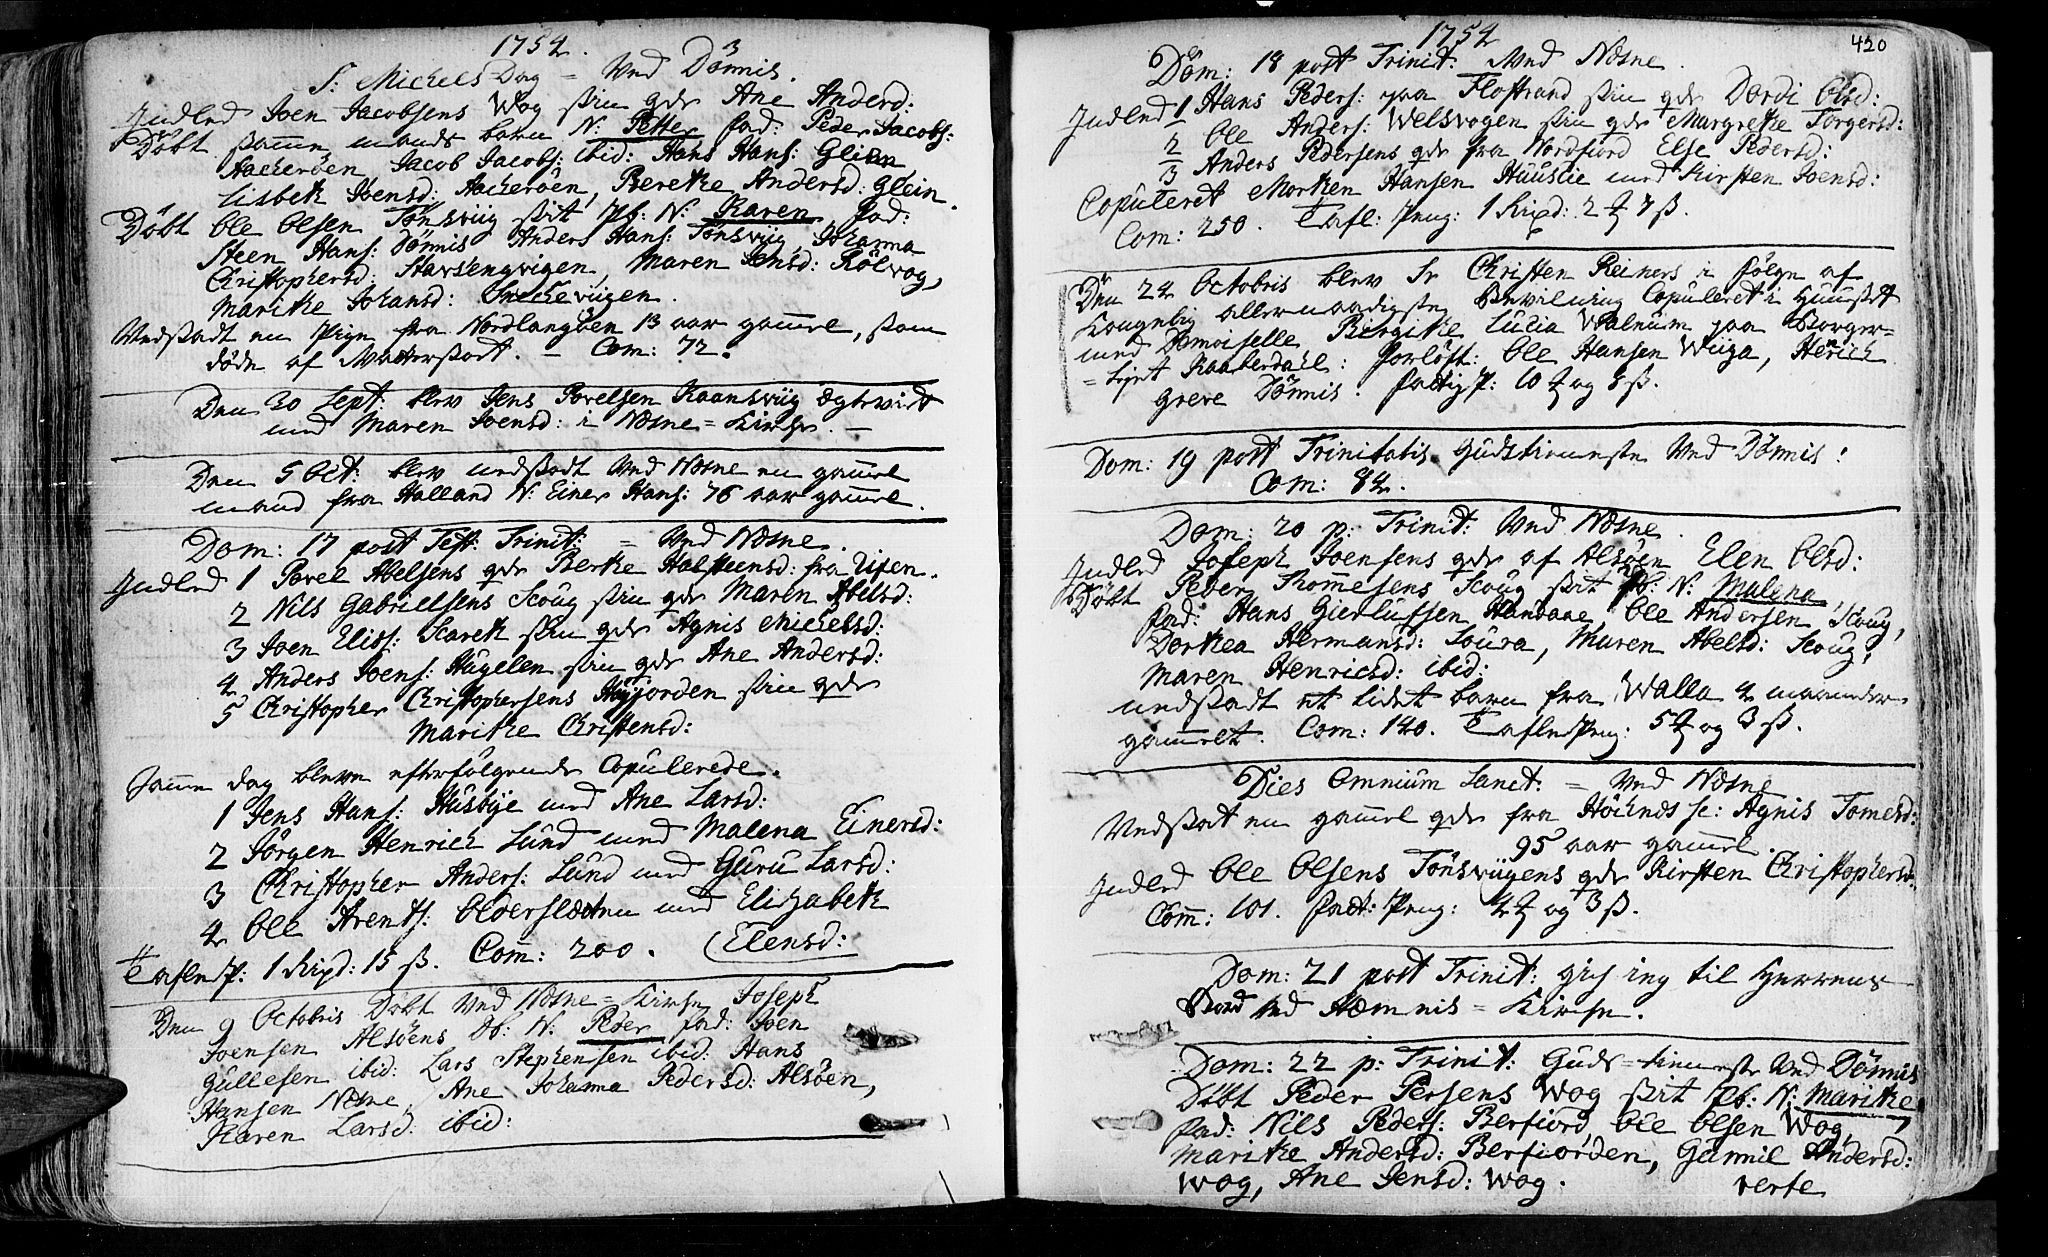 1754.
S. Michels Dag = Ved Dönnis.
Indled Joen Jacobsens Wog sin qde Ane Anderd:
Döbt samme mands barn N: Petter fad: Peder Jacobs:
Aacheröen Jacob Jacobs: ibid: Hans Hans: Glein
Lisbeth Joensd: Aacheröen, Berethe Andersd: Glein.
Döbt Ole Olsen Tönsviig sit Pb: N: Karen fad:
Steen Hans: Dönnis Anders Hans: Tönsviig, Johanna
Christophersd: Stavsengvigen, Maren Jensd: Rölvog,
Marithe Johansd: viigen.
Vedstadt en Pige fra Nordlangöen 13 aar gamel, som
döde af Moderstadt. — Com: 72.
Den 30 Sept: blev Jens Povelsen Raansviig Egtevied
med Maren Joensd: i Nesne = Kirche. —
Den 5 Oct: blev nedsadt Ved Nesne en gamel
mand fra Halland N: Einer Hans: 76 aar gamel.
Dom: 17 post Fest: Trinit: = Ved Nesne.
Indled 1 Povel Abelsens qde Berthe Halsteensd: fra
2 Nils Gabrielsens Scoug sin qde Maren Abelsd:
3 Joen Elis: Scareth sin qde Agnis Michelsd:
4 Anders Joens: Hugelen sin qde Ane Andersd:
5 Christopher Christophersens Höyjorden sin qde
Marithe Christensd:
Samme dag bleve efterfölgende Copulerede.
1 Jens Hans: Husbye med Ane Larsd:
2 Jörgen Henrich Lund med Malena Einersd:
3 Christopher Anders: Lund med Guru Larsd:
4 Ole Arents: Oldersletten med Elizabeth
Tafle P: 1 Rixd: 15 ß. Com: 200. (Elensd:
Den 9 Octobris Döbt Ved Nesne = Kirche Joseph
Joensen Alsöens Db: N: Peder fad: Joen
Gullesen ibid: Lars Stephensen ibid: Hans
Hansen Nesne, Ane Johanna Pedersd: Alsöen,
Karen Larsd: ibid:
1754
420
Dom: 18 post Trinit: Ved Nesne.
Indled 1 Hans Peders: paa Flostrand sin qde Dordi Olsd:
2 Ole Anders: Welsvogen sin qde Margrethe Torgersd:
3 Anders Pedersens qde fra Nordfiord Else Pedersd:
Copuleret Morten Hansen Huuslie med Kirsten Joensd:
Com: 250. Tafl: Peng: 1 Rixd: 2 ₰ 7 ß.
Den 24 Octobris blev Sr Christen Reiners i fölge af
Kongelig allernaadigste Bevilning Copuleret i Huuset
med Demoiselle Birgithe Lucia Walnum paa Borger-
= Raaberdahl: forlöft: Ole Hansen Wiiga, Henrich
Greve Dönnis. fattig P: 10 ₰ og 8 ß.
Dom: 19 post Trinitatis Gudstienneste Ved Dönnis:
Com: 84.
Dom: 20 p: Trinit: Ved Nesne.
Indled Joseph Joensens qde af Alsöen Elen Olsd:
Döbt Peder Thomesens Scoug sit Pb: N: Malena,
fad: Hans Gierlufsen Handane, Ole Andersen Scoug,
Dorthea Hermansd: Soura, Maren Abelsd: Scoug,
Maren Henricsd: ibid:
nedsadt et lidet barn fra Walla 4 maaneder
gammelt. Com: 140. Tafle Peng: 5 ₰ og 3 ß.
Dies Omnium Sanct: = Ved Nesne
Vedstat en gamel qde fra sc: Agnis Tomesd:
95 aar gamel.
Indled Ole Olsens Tönsviigens qde Kirsten Christophersd:
Com: 101. fatt: Peng: 4 ₰ og 3 ß.
Dom: 21 post Trinit: gich ieg til Herrens
Bord ved Hemnis = Kirche.
Dom: 22 p: Trinit: Guds = tienneste Ved Dönnis
Döbt Peder Persens Wog sit Pb: N: Marithe,
fad: Nils Peders: Berfiord, Ole Olsen Wog,
Marithe Andersd: Berfiorden, Gunnil Andersd:
Wog, Ane Jensd: Wog. verte